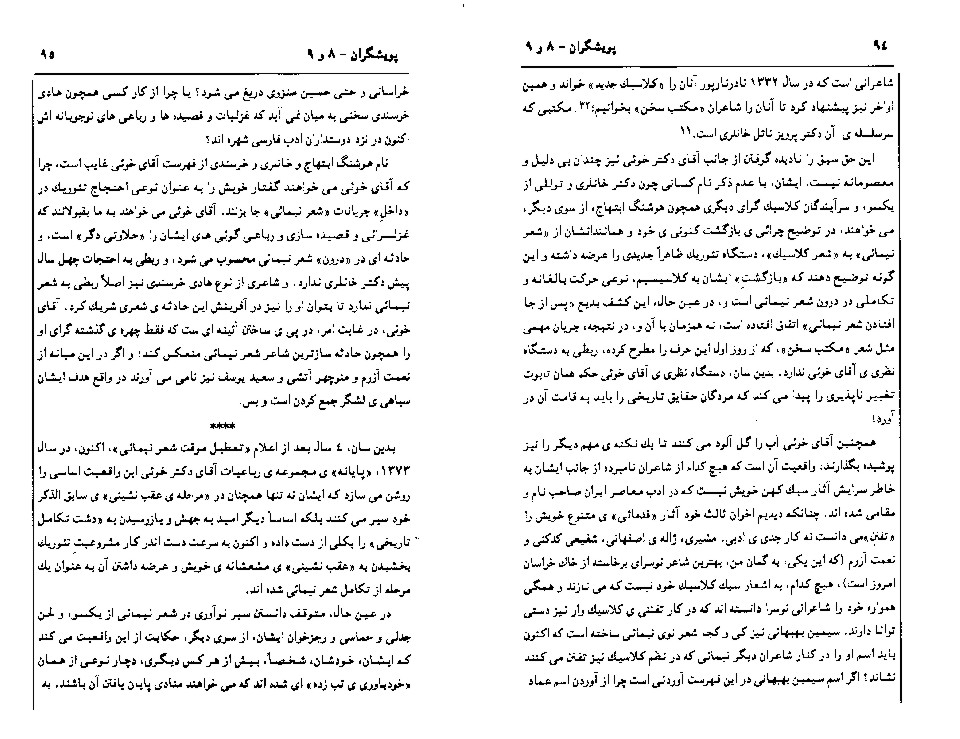 ۹٤
پویشگران - ۸ و ۹
شاعرانی است که در سال ۱۳۳۲ نادرنادرپور آنان را «کلاسیک جدید» خواند و همین
اواخر نیز پیشنهاد کرد تا آنان را شاعران «مکتب سخن» بخوانیم؛ مکتبی که
سرسلسله ی آن دکتر پرویز ناتل خانلری است.۱۱
این حق سبق را نادیده گرفتن از جانب آقای دکتر خوئی نیز چندان بی دلیل و
معصومانه نیست. ایشان، با عدم ذکر نام کسانی چون دکتر خانلری و توللی از
یکسو، و سرآیندگان کلاسیک گرای دیگری همچون هوشنگ ابتهاج، از سوی دیگر،
می خواهند، در توضیح چرائی ی بازگشت کنونی ی خود و همانندانشان از «شعر
نیمائی» به «شعر کلاسیک»، دستگاه تئوریک ظاهراً جدیدی را عرضه داشته و این
گونه توضیح دهند که «بازگشت» ایشان به کلاسیسم، نوعی حرکت بالغانه و
تکاملی در درون شعر نیمائی است و، در عین حال، این کشف بدیع «پس از جا
افتادن شعر نیمائی» اتفاق افتاده است، نه همزمان با آن و، در نتیجه، جریان مهمی
مثل شعر «مکتب سخن»، که از روز اول این حرف را مطرح کرده، ربطی به دستگاه
نظری ی آقای خوئی ندارد. بدین سان، دستگاه نظری ی آقای خوئی حکم همان تابوت
تغییر ناپذیری را پیدا می کند که مردگان حقایق تاریخی را باید به قامت آن در
آورد!
همچنین آقای خوئی آب را گل آلود می کنند تا یک نکته ی مهم دیگر را نیز
پوشیده بگذارند. واقعیت آن است که هیچ کدام از شاعران نامبرده از جانب ایشان به
خاطر سرایش آثار سبک کهن خویش نیست که در ادب معاصر ایران صاحب نام و
مقامی شده اند. چنانکه دیدیم اخوان ثالث خود آثار «قدمائی» ی متنوع خویش را
«تفنن»می دانست نه کار جدی ی ادبی. مشیری، ژاله ی اصفهانی، شفیعی کدکنی و
نعمت آزرم (که این یکی، به گمان من، بهترین شاعر نوسرای برخاسته از خاک خراسان
امروز است)، هیچ کدام، به اشعار سبک کلاسیک خود نیست که می نازند و همگی
همواره خود را شاعرانی نوسرا دانسته اند که در کار تفننی ی کلاسیک وار نیز دستی
توانا دارند. سیمین بهبهانی نیز کی و کجا شعر نوی نیمائی ساخته است که اکنون
باید اسم او را در کنار شاعران دیگر نیمائی که در نظم کلاسیک نیز تفنن می کنند
نشاند؟ اگر اسم سیمین بهبهانی در این فهرست آوردنی است چرا از آوردن اسم عماد
پویشگران - ۸ و ۹
۹۵
خراسانی و حتی حسین منزوی دریغ می شود؟ یا چرا از کار کسی همچون هادی
خرسندی سخنی به میان نمی آید که غزلیات و قصیده ها و رباعی های نوجویانه اش
اکنون در نزد دوستداران ادب فارسی شهره اند؟
نام هوشنگ ابتهاج و خانلری و خرسندی از فهرست آقای خوئی غایب است، چرا
که آقای خوئی می خواهند گفتار خویش را به عنوان نوعی احتجاج تئوریک در
«داخل» جریانات «شعر نیمائی» جا بزنند. آقای خوئی می خواهند به ما بقبولانند که
غزلسرائی و قصیده سازی و رباعی گوئی های ایشان را «حلاوتی دگر» است، و
حادثه ای در «درون» شعر نیمائی محسوب می شود، و ربطی به احتجاجات چهل سال
پیش دکتر خانلری ندارد. و شاعری از نوع هادی خرسندی نیز اصلاً ربطی به شعر
نیمائی ندارد تا بتوان او را نیز در آفرینش این حادثه ی شعری شریک کرد. آقای
خوئی، در غایت امر، در پی ی ساختن آئینه ای ست که فقط چهره ی گذشته گرای او
را همچون حادثه سازترین شاعر شعر نیمائی منعکس کند؛ و اگر در این میانه از
نعمت آزرم و منوچهر آتشی و سعید یوسف نیز نامی می آورند در واقع هدف ایشان
سیاهی ی لشگر جمع کردن است و بس.
****
بدین سان، ٤ سال بعد از اعلام «تعطیل موقت شعر نیمائی»، اکنون، در سال
۱۳۷۳، «پایانه» ی مجموعه ی رباعیات آقای دکتر خوئی این واقعیت اساسی را
روشن می سازد که ایشان نه تنها همچنان در «مرحله ی عقب نشینی» ی سابق الذکر
خود سیر می کنند بلکه اساساً دیگر امید به جهش و بازرسیدن به «دشت تکامل
تاریخی» را بکلی از دست داده و اکنون به سرعت دست اندر کار مشروعیت تئوریک
بخشیدن به «عقب نشینی» ی مشعشانه ی خویش و عرضه داشتن آن به عنوان یک
مرحله از تکامل شعر نیمائی شده اند.
در عین حال، متوقف دانستن سیر نوآوری در شعر نیمائی از یکسو، و لحن
جدلی و حماسی و رجزخوان ایشان، از سوی دیگر، حکایت از این واقعیت می کند
که ایشان، خودشان، شخصاً، بیش از هر کس دیگری، دچار نوعی از همان
«خودباوری ی تب زده» ای شده اند که می خواهند منادی پایان یافتن آن باشند. به